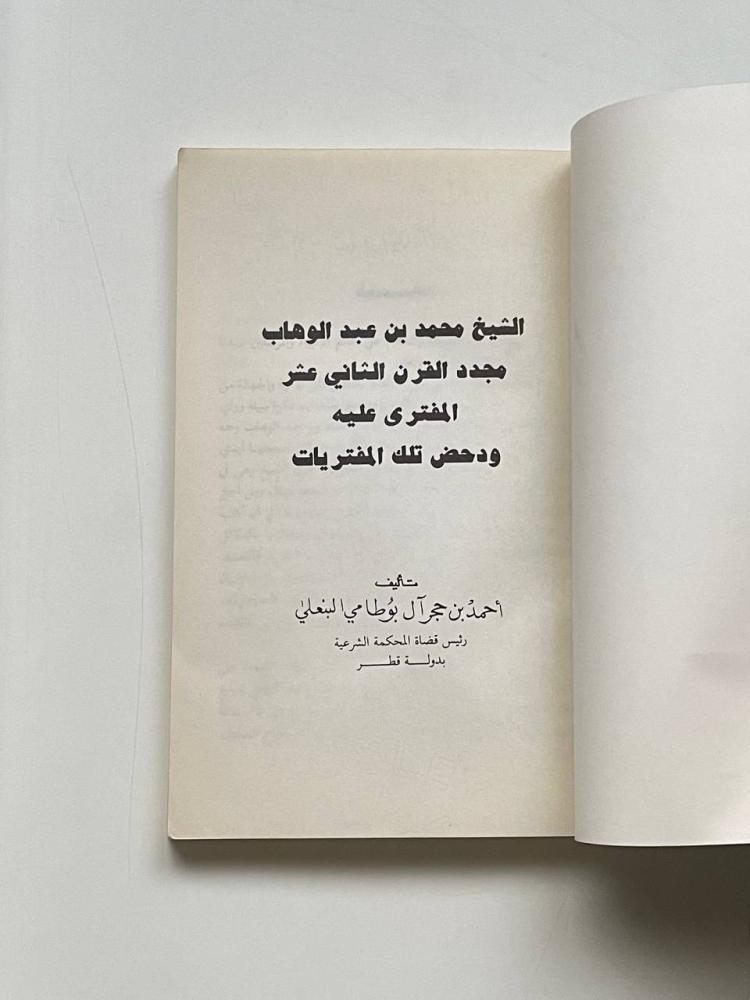 الشيخ محمد بن عبد الوهاب
مجدد القرن الثاني عشر
المفترى عليه
ودحض تلك المفتريات
تأليف
أحمد بن حجر آل بُوطامي البنعلي
رئيس قضاة المحكمة الشرعية
بدولـــة قطـــر